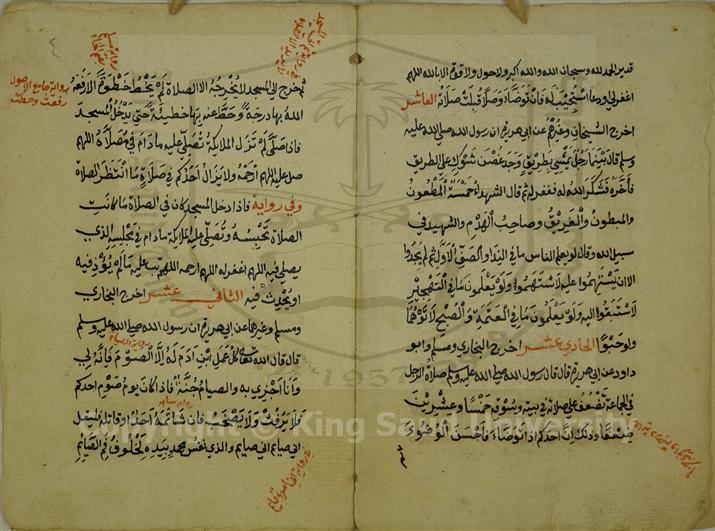 قدير الحمد لله وسبحان الله والله اكبر ولا حول ولا قوة الا بالله اللهم
اغفر لي ودعا استجيب له فان توضأ وصلا قبلت صلاته العاشر
اخرج الشيخان وغيرهم عن ابي هريرة ان رسول الله صلى الله عليه
وسلم قال بينما رجل يمشي بطريق وجد غصن شوك على الطريق
فأخره فشكر الله له فغفر له ثم قال الشهداء خمسة المطعون
والمبطون والغريق وصاحب الهدم والشهيد في
سبيل الله وقال لو يعلم الناس ما في النداء والصف الاول ثم لم يجدوا
الا ان يستهموا عليه لاستهموا ولو يعلمون ما في التهجير
لاستبقوا اليه ولو يعلمون ما في العتمة والصبح لاتوهما
ولو حبوا الحادي عشر اخرج البخاري ومسلم وابو
داود عن ابي هريرة قال قال رسول الله صلى الله عليه وسلم صلاة الرجل
في الجماعة تضعف على صلاته في بيته وسوقه خمسا وعشرين
ضعفا وذلك ان احدكم اذا توضاء فأحسن الوضوء
ثم
ثم خرج الى المسجد لا يخرجه الا الصلاة لم يخط خطوة الا رفعه
الله بها درجة وحط عنه بها خطيئة حتى يدخل المسجد
فاذا صلى لم تزل الملايكة تصلي عليه ما دام في مصلاه اللهم
صل عليه اللهم ارحمه ولا يزال احدكم في صلاة ما انتظر الصلاة
وفي رواية فاذا دخل المسجد كان في الصلاة ما كانت
الصلاة تحبسه وتصلي عليه الملائكة ما دام في مجلسه الذي
يصلي فيه اللهم اغفر له اللهم ارحمه اللهم تب عليه ما لم يؤذ فيه
او يحدث فيه الثاني عشر اخرج البخاري
ومسلم وغيرهما عن ابي هريرة ان رسول الله صلى الله عليه وسلم
قال قال الله تعالى كل عمل ابن ادم له الا الصوم فانه لي
وانا اجزي به والصيام جنة فاذا كان يوم صوم احدكم
فلا يرفث ولا يصخب فان شاتمه احد او قاتله فليقل
اني صايم اني صايم والذي نفس محمد بيده لخلوف فم الصايم
رواية جامع الاصول
رفعت وحطت
رواية الصيام
Copyright © King Saud University
1957